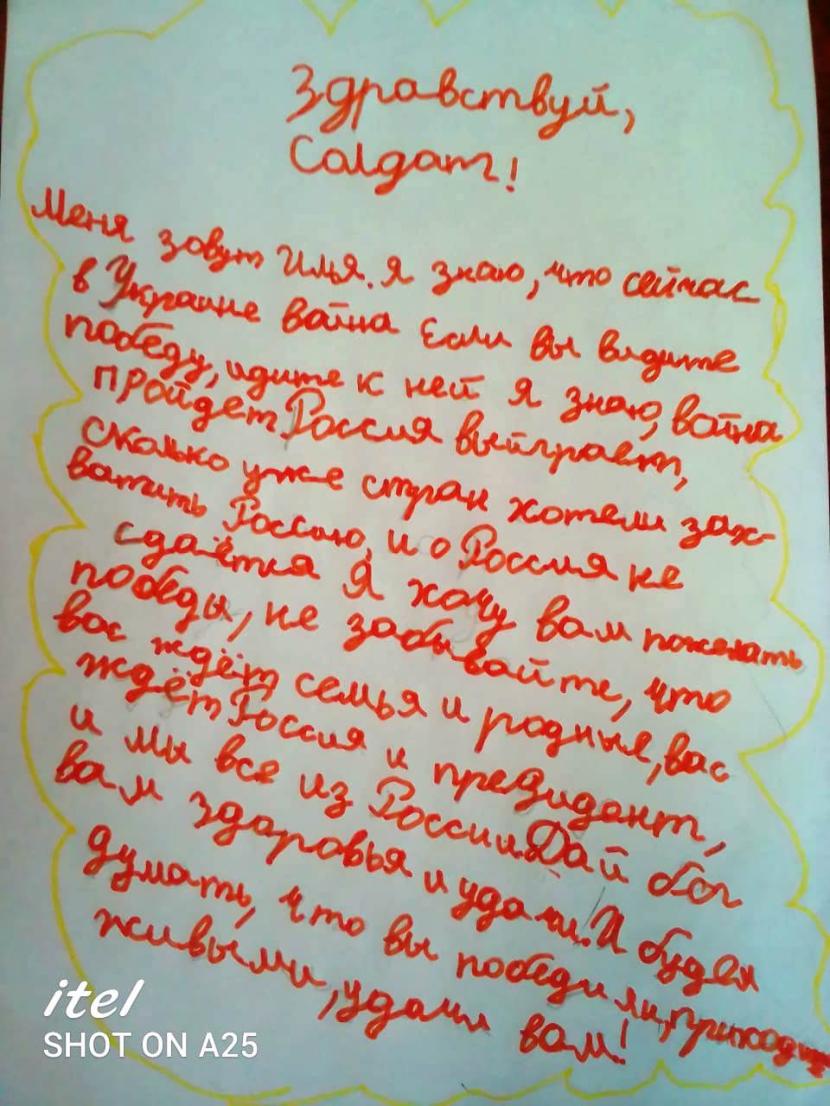 Здравствуй,
Солдат!
Меня зовут Илья. Я знаю, что сейчас
в Украине война Если вы видите
победу, идите к ней Я знаю, война
пройдет. Россия выйграет,
сколько уже стран хотели зах-
ватить Россию, и о Россия не
сдаётся Я хочу вам пожелать
победы, не забывайте, что
вас ждёт семья и родные, вас
ждёт Россия и президант,
и мы все из России. Дай бог
вам здоровья и удачи. И будем
думать, что вы победили,
живыми, удачи вам!
itel
SHOT ON A25